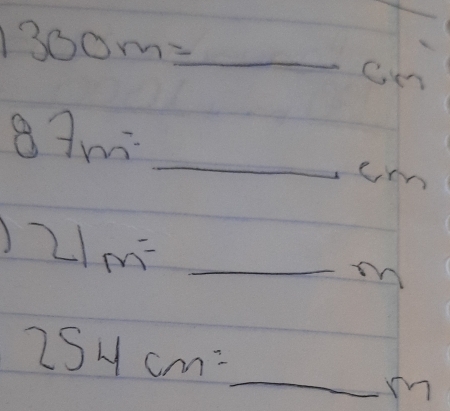 ) 300m= ________ cm
87m= ________ cm
) 21m= ________ m
254 cm= ________ m